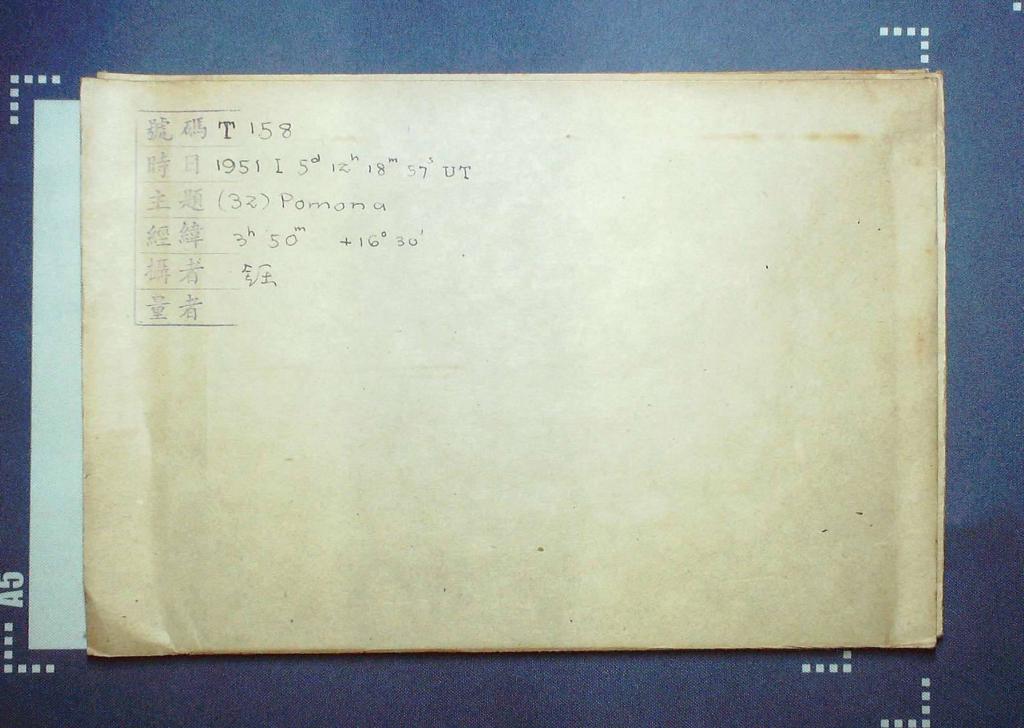 號碼 T 158
時日 1951 I 5ᵈ 12ʰ 18ᵐ 57ˢ UT
主題 (32) Pomona
經緯 3ʰ 50ᵐ +16° 30'
攝者 鈺
量者
A5